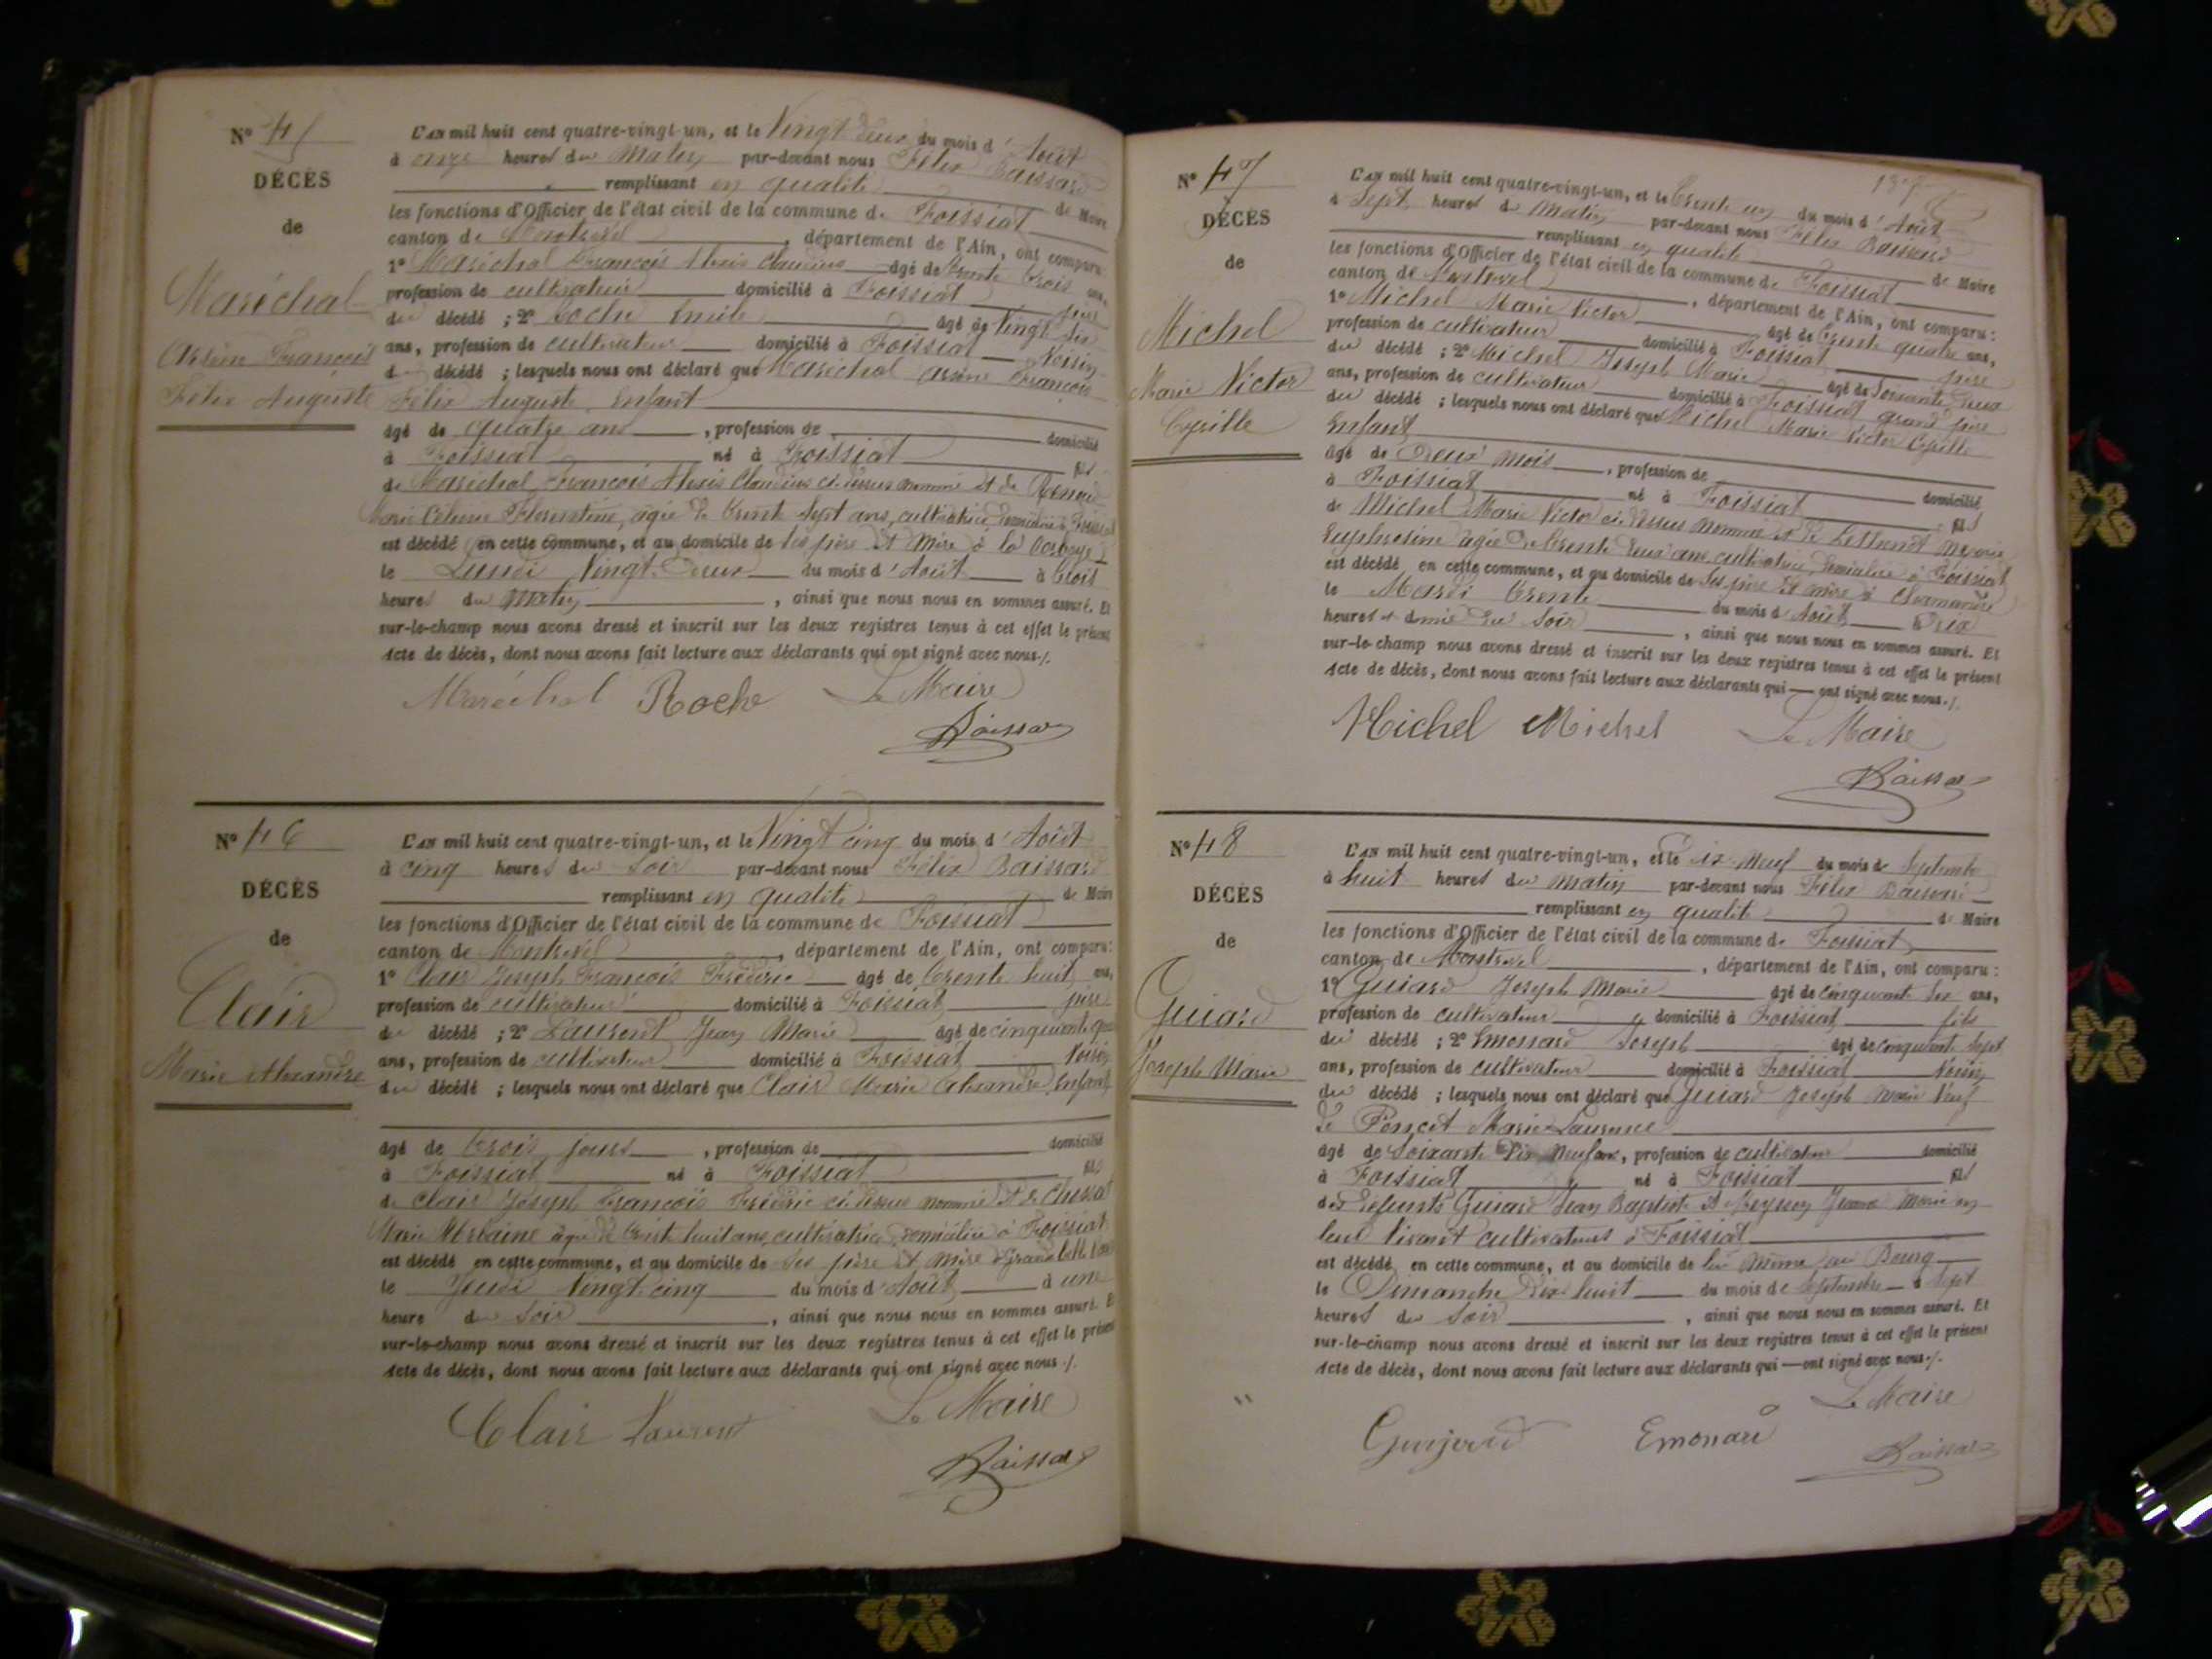 N° 45
DÉCÈS
de
Maréchal
Arsène François
Félix Auguste
L'AN mil huit cent quatre-vingt-un, et le Vingt deux du mois d'Août
à onze heures du Matin par-devant nous Félix Baissard
remplissant en qualité de Maire
les fonctions d'Officier de l'état civil de la commune de Foissiat
canton de Montrevel, département de l'Ain, ont comparu
1° Maréchal François Alexis Claudius âgé de trente trois ans,
profession de cultivateur domicilié à Foissiat père
du décédé ; 2° Roche Emile âgé de Vingt six
ans, profession de cultivateur domicilié à Foissiat Voisin
du décédé ; lesquels nous ont déclaré que Maréchal Arsène François
Félix Auguste Enfant
âgé de quatre ans, profession de domicilié
à Foissiat né à Foissiat fils
de Maréchal François Alexis Claudius ci-dessus nommé et de
Marie Florentine, agée de trente sept ans, cultivatrice, domiciliée à Foissiat
est décédé en cette commune, et au domicile de ses père et mère à la
le Lundi Vingt-Deux du mois d'Août à trois
heures du Matin, ainsi que nous nous en sommes assuré. Et
sur-le-champ nous avons dressé et inscrit sur les deux registres tenus à cet effet le présent
acte de décès, dont nous avons fait lecture aux déclarants qui ont signé avec nous./.
Maréchal Roche Le Maire
Baissard
N° 46
DÉCÈS
de
Clair
Marie Alexandre
L'AN mil huit cent quatre-vingt-un, et le Vingt cinq du mois d'Août
à cinq heures du soir par-devant nous Félix Baissard
remplissant en qualité de Maire
les fonctions d'Officier de l'état civil de la commune de Foissiat
canton de Montrevel, département de l'Ain, ont comparu:
1° Clair Joseph François Frédéric âgé de trente huit ans,
profession de cultivateur domicilié à Foissiat père
du décédé ; 2° Laurent Jean Marie âgé de cinquante
ans, profession de cultivateur domicilié à Foissiat Voisin
du décédé ; lesquels nous ont déclaré que Clair Marie Alexandre Enfant
âgé de trois jours, profession de domicilié
à Foissiat né à Foissiat fils
de Clair Joseph François Frédéric ci-dessus nommé et de
Marie agée de trente huit ans, cultivatrice, domiciliée à Foissiat
est décédé en cette commune, et au domicile de ses père et mère
le Jeudi Vingt-cinq du mois d'Août à une
heure du soir, ainsi que nous nous en sommes assuré. Et
sur-le-champ nous avons dressé et inscrit sur les deux registres tenus à cet effet le présent
acte de décès, dont nous avons fait lecture aux déclarants qui ont signé avec nous./.
Clair Laurent Le Maire
Baissard
N° 47
DÉCÈS
de
Michel
Marie Victor
Cyrille
L'AN mil huit cent quatre-vingt-un, et le trente un du mois d'Août
à Sept heures du Matin par-devant nous Félix Baissard
remplissant en qualité de Maire
les fonctions d'Officier de l'état civil de la commune de Foissiat
canton de Montrevel, département de l'Ain, ont comparu:
1° Michel Marie Victor âgé de trente quatre ans,
profession de cultivateur domicilié à Foissiat père
du décédé ; 2° Michel Joseph Marie âgé de soixante deux
ans, profession de cultivateur domicilié à Foissiat grand père
du décédé ; lesquels nous ont déclaré que Michel Marie Victor Cyrille
Enfant
âgé de Deux mois, profession de domicilié
à Foissiat né à Foissiat fils
de Michel Marie Victor ci-dessus nommé et de Marie
Euphrosine agée de trente deux ans, cultivatrice, domiciliée à Foissiat
est décédé en cette commune, et au domicile de ses père et mère à
le Mardi trente du mois d'Août à dix
heures et demie du soir, ainsi que nous nous en sommes assuré. Et
sur-le-champ nous avons dressé et inscrit sur les deux registres tenus à cet effet le présent
acte de décès, dont nous avons fait lecture aux déclarants qui ont signé avec nous./.
Michel Michel Le Maire
Baissard
N° 48
DÉCÈS
de
Guiard
Joseph Marie
L'AN mil huit cent quatre-vingt-un, et le dix Neuf du mois de Septembre
à huit heures du matin par-devant nous Félix Baissard
remplissant en qualité de Maire
les fonctions d'Officier de l'état civil de la commune de Foissiat
canton de Montrevel, département de l'Ain, ont comparu:
1° Guiard Joseph Marie âgé de cinquante six ans,
profession de cultivateur domicilié à Foissiat fils
du décédé ; 2° Emonard Joseph âgé de cinquante sept
ans, profession de cultivateur domicilié à Foissiat Voisin
du décédé ; lesquels nous ont déclaré que Guiard Joseph Marie Veuf
de Poncet Marie Laurence
âgé de soixante Dix Neuf ans, profession de cultivateur domicilié
à Foissiat né à Foissiat fils
des défunts Guiard Jean Baptiste et Marie en
leur Vivant cultivateurs à Foissiat
est décédé en cette commune, et au domicile de lui même au Bourg
le Dimanche Dix huit du mois de Septembre à Sept
heures du soir, ainsi que nous nous en sommes assuré. Et
sur-le-champ nous avons dressé et inscrit sur les deux registres tenus à cet effet le présent
acte de décès, dont nous avons fait lecture aux déclarants qui ont signé avec nous./.
Le Maire
Emonard Baissard